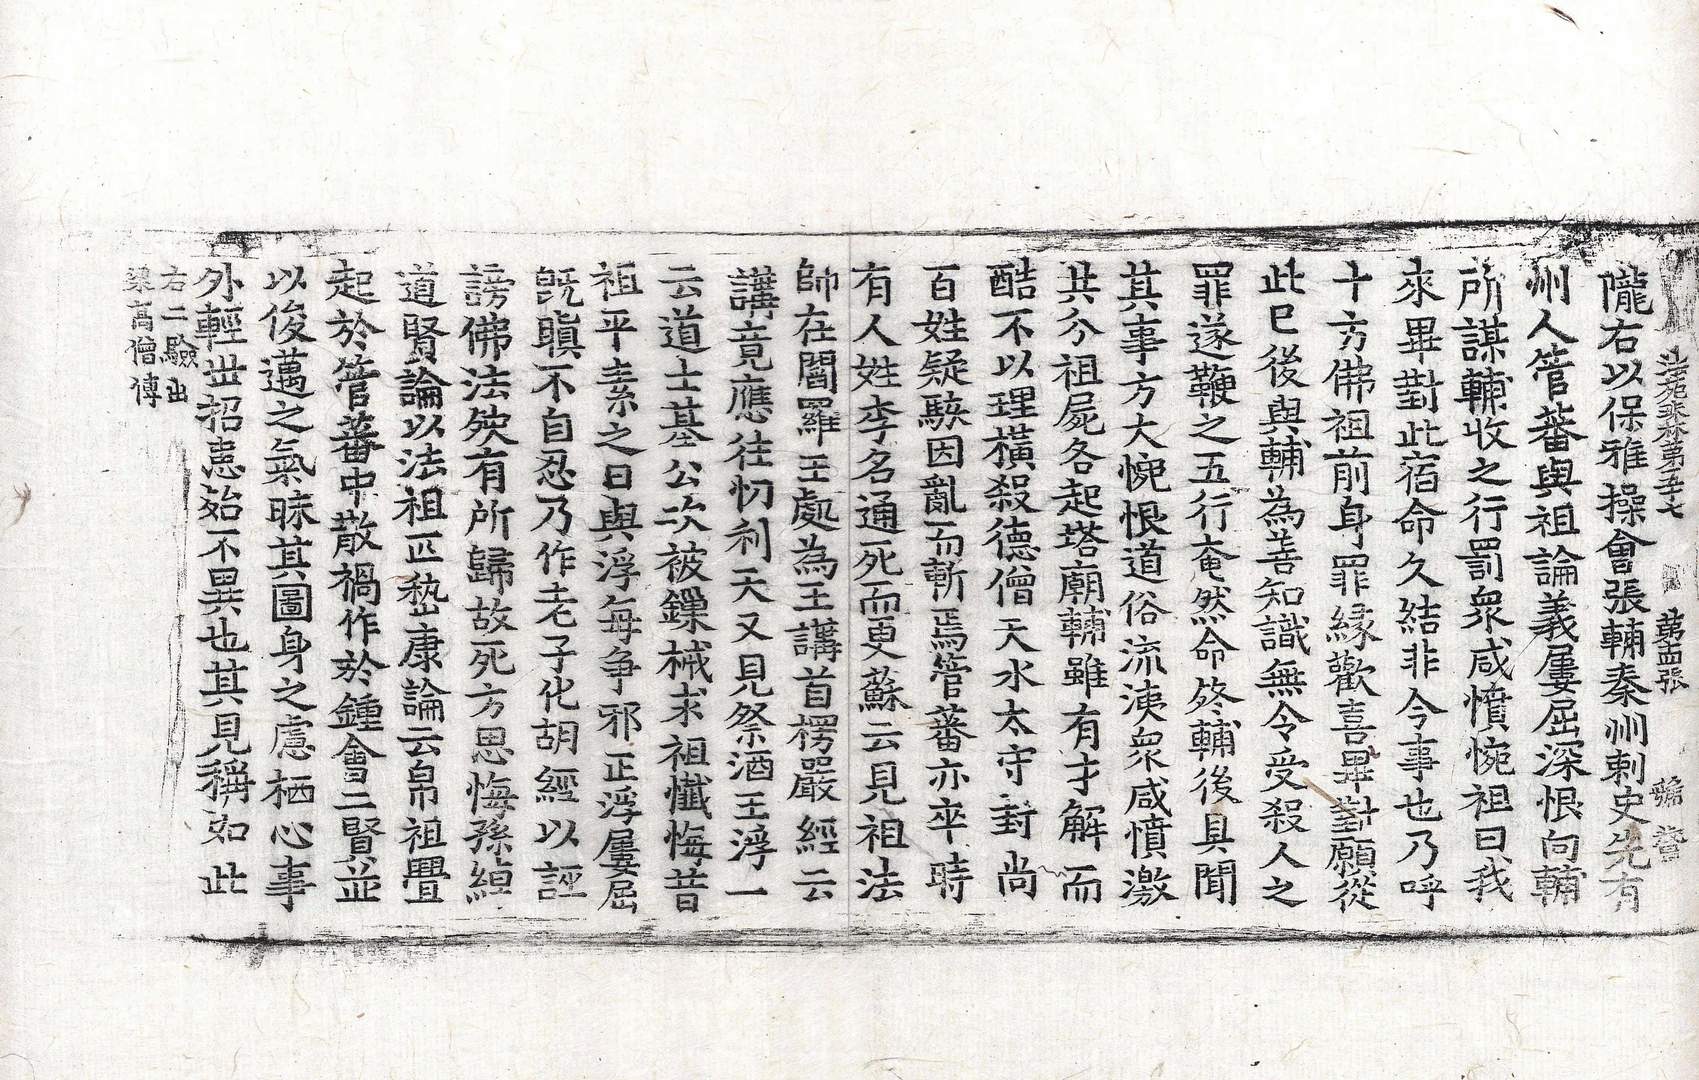 法苑珠林第五七 第十四張 𭏟
隴右以保雅操會張輔秦州刺史先有
州人管蕃與祖論義屢屈深恨向輔
所謀輔收之行罰衆咸憤惋祖曰我
來畢對此宿命久結非今事也乃呼
十方佛祖前身罪緣歡喜畢對願從
此已後與輔為善知識無令受殺人之
罪遂鞭之五行奄然命終輔後具聞
其事方大惋恨道俗流洟衆咸憤激
共分祖屍各起塔廟輔雖有才解而
酷不以理橫殺德僧天水太守封尚
百姓疑駭因亂而斬焉管蕃亦卒時
有人姓李名通死而更蘇云見祖法
師在閻羅王處為王講首楞嚴經云
講竟應往忉利天又見祭酒王浮一
云道士基公次被鏁械求祖懺悔昔
祖平素之日與浮每爭邪正浮屢屈
旣瞋不自忍乃作老子化胡經以誣
謗佛法殃有所歸故死方思悔孫綽
道賢論以法祖匹嵆康論云帛祖舋
起於管蕃中散禍作於鍾會二賢並
以俊邁之氣昧其圖身之慮栖心事
外輕世招患殆不異也其見稱如此
右二驗出
梁高僧傳